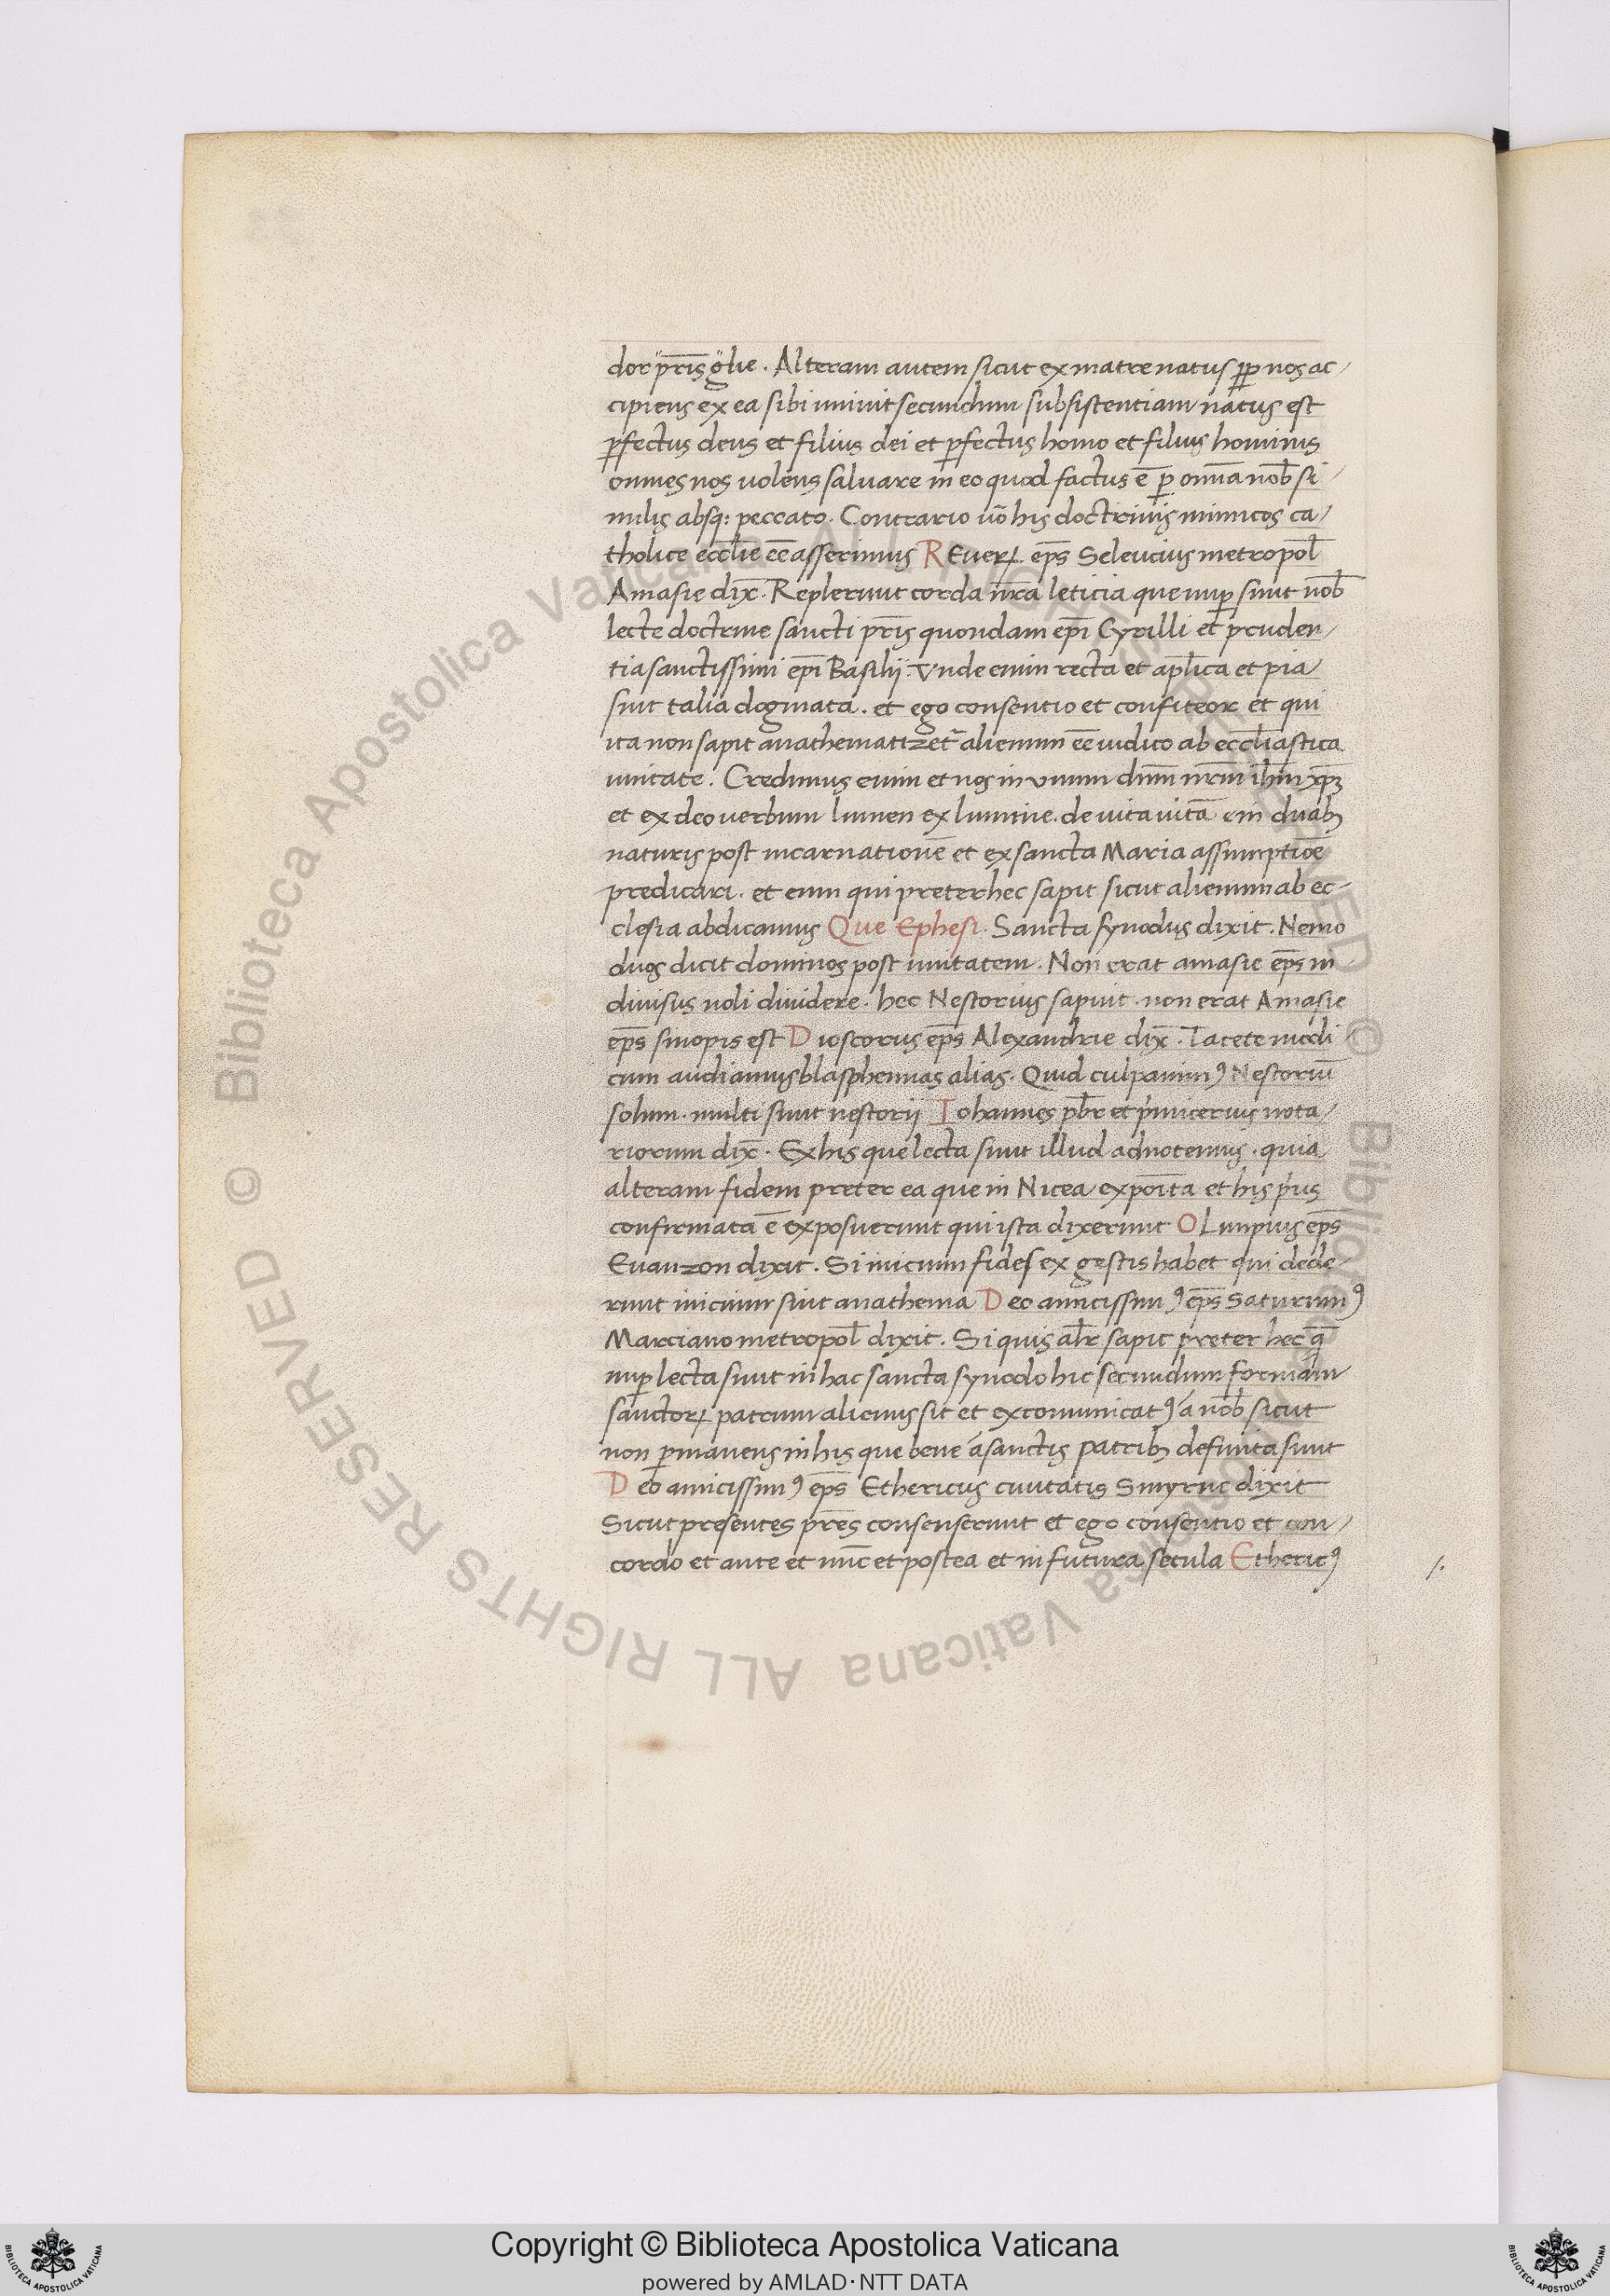 dor p̄ris gl̄ie . Alteram autem sicut ex matre natus ꝓpꝑ nos ac/
cipiens ex ea sibi univit secundum subsistentiam natus est
ꝑfectus deus et filius dei et ꝑfectus homo et filius hominis
omnes nos volens salvare in eo quod factus ē ꝑ om̄a nob̄ si/
milis absq: peccato . Contrario v̄o his doctrinis inimicos ca/
tholice eccl̄ie ēe asserimus REverꝝ . ep̄s Seleucius metropol̄
Amasie dix̄ . Replerunt corda n̄ra leticia que nuꝑ sunt nob̄
lecte doctrine sancti p̄ris quondam ep̄i Cyrilli et pruden/
tia sanctissimi ep̄i Basilij : Unde enim recta et apl̄ica et pia
sint talia dogmata . et ego consentio et confiteor et qui
ita non sapit anathematizet᷑ alienum ēe iudico ab eccl̄iastica
unitate . Credimus enim et nos in unum dn̄m nr̄m ih̄m xp̄ꝫ
et ex deo verbum lumen ex lumine . de vita vitā em̄ duabꝫ
naturis post incarnationē et ex sancta Maria assumptiōe
predicari . et eum qui preter hec sapit sicut alienum ab ec-
clesia abdicamus Que Ephesi . Sancta synodus dixit . Nemo
duos dicit dominos post unitatem . Non erat amasie ep̄s in/
divisus noli dividere . hec Nestorius sapuit . non erat Amasie
ep̄s sinopis est Dioscorus ep̄s Alexandrie dix̄ . Tacete modi/
cum audiamus blasphemias alias . Quid culpamimꝰ Nestoriū
solum . multi sunt nestorii Iohannes pb̄r et p̓micerius nota/
riorum dix̄ . Ex his que lecta sunt illud adnotemus . quia
alteram fidem preter ea que in Nicea expōita et his p̓us
confirmata ē exposuerunt qui ista dixerunt OLimpius ep̄s
Evanzon dixit . Si inicium fides ex gestis habet qui dede/
runt inicium sint anathema Deo amicissimꝰ ep̄s Saturninꝰ
Marciano metropol̄ dixit . Si quis al̄r sapit preter hec q̄
nuꝑ lecta sunt in hac sancta synodo hic secundum formam
sanctorꝝ patrum alienus sit et excomunicatꝰ á nob̄ sicut
non ꝑmanens in his que bene á sanctis patribꝫ definita sunt
Deo amicissimꝰ ep̄s Ethericus civitatis Smyrne dixit
Sicut presentes pr̄es consenserunt et ego consentio et con/
cordo et ante et nūc et postea et in futura secula Ethericꝰ
Copyright © Biblioteca Apostolica Vaticana
powered by AMLAD·NTT DATA